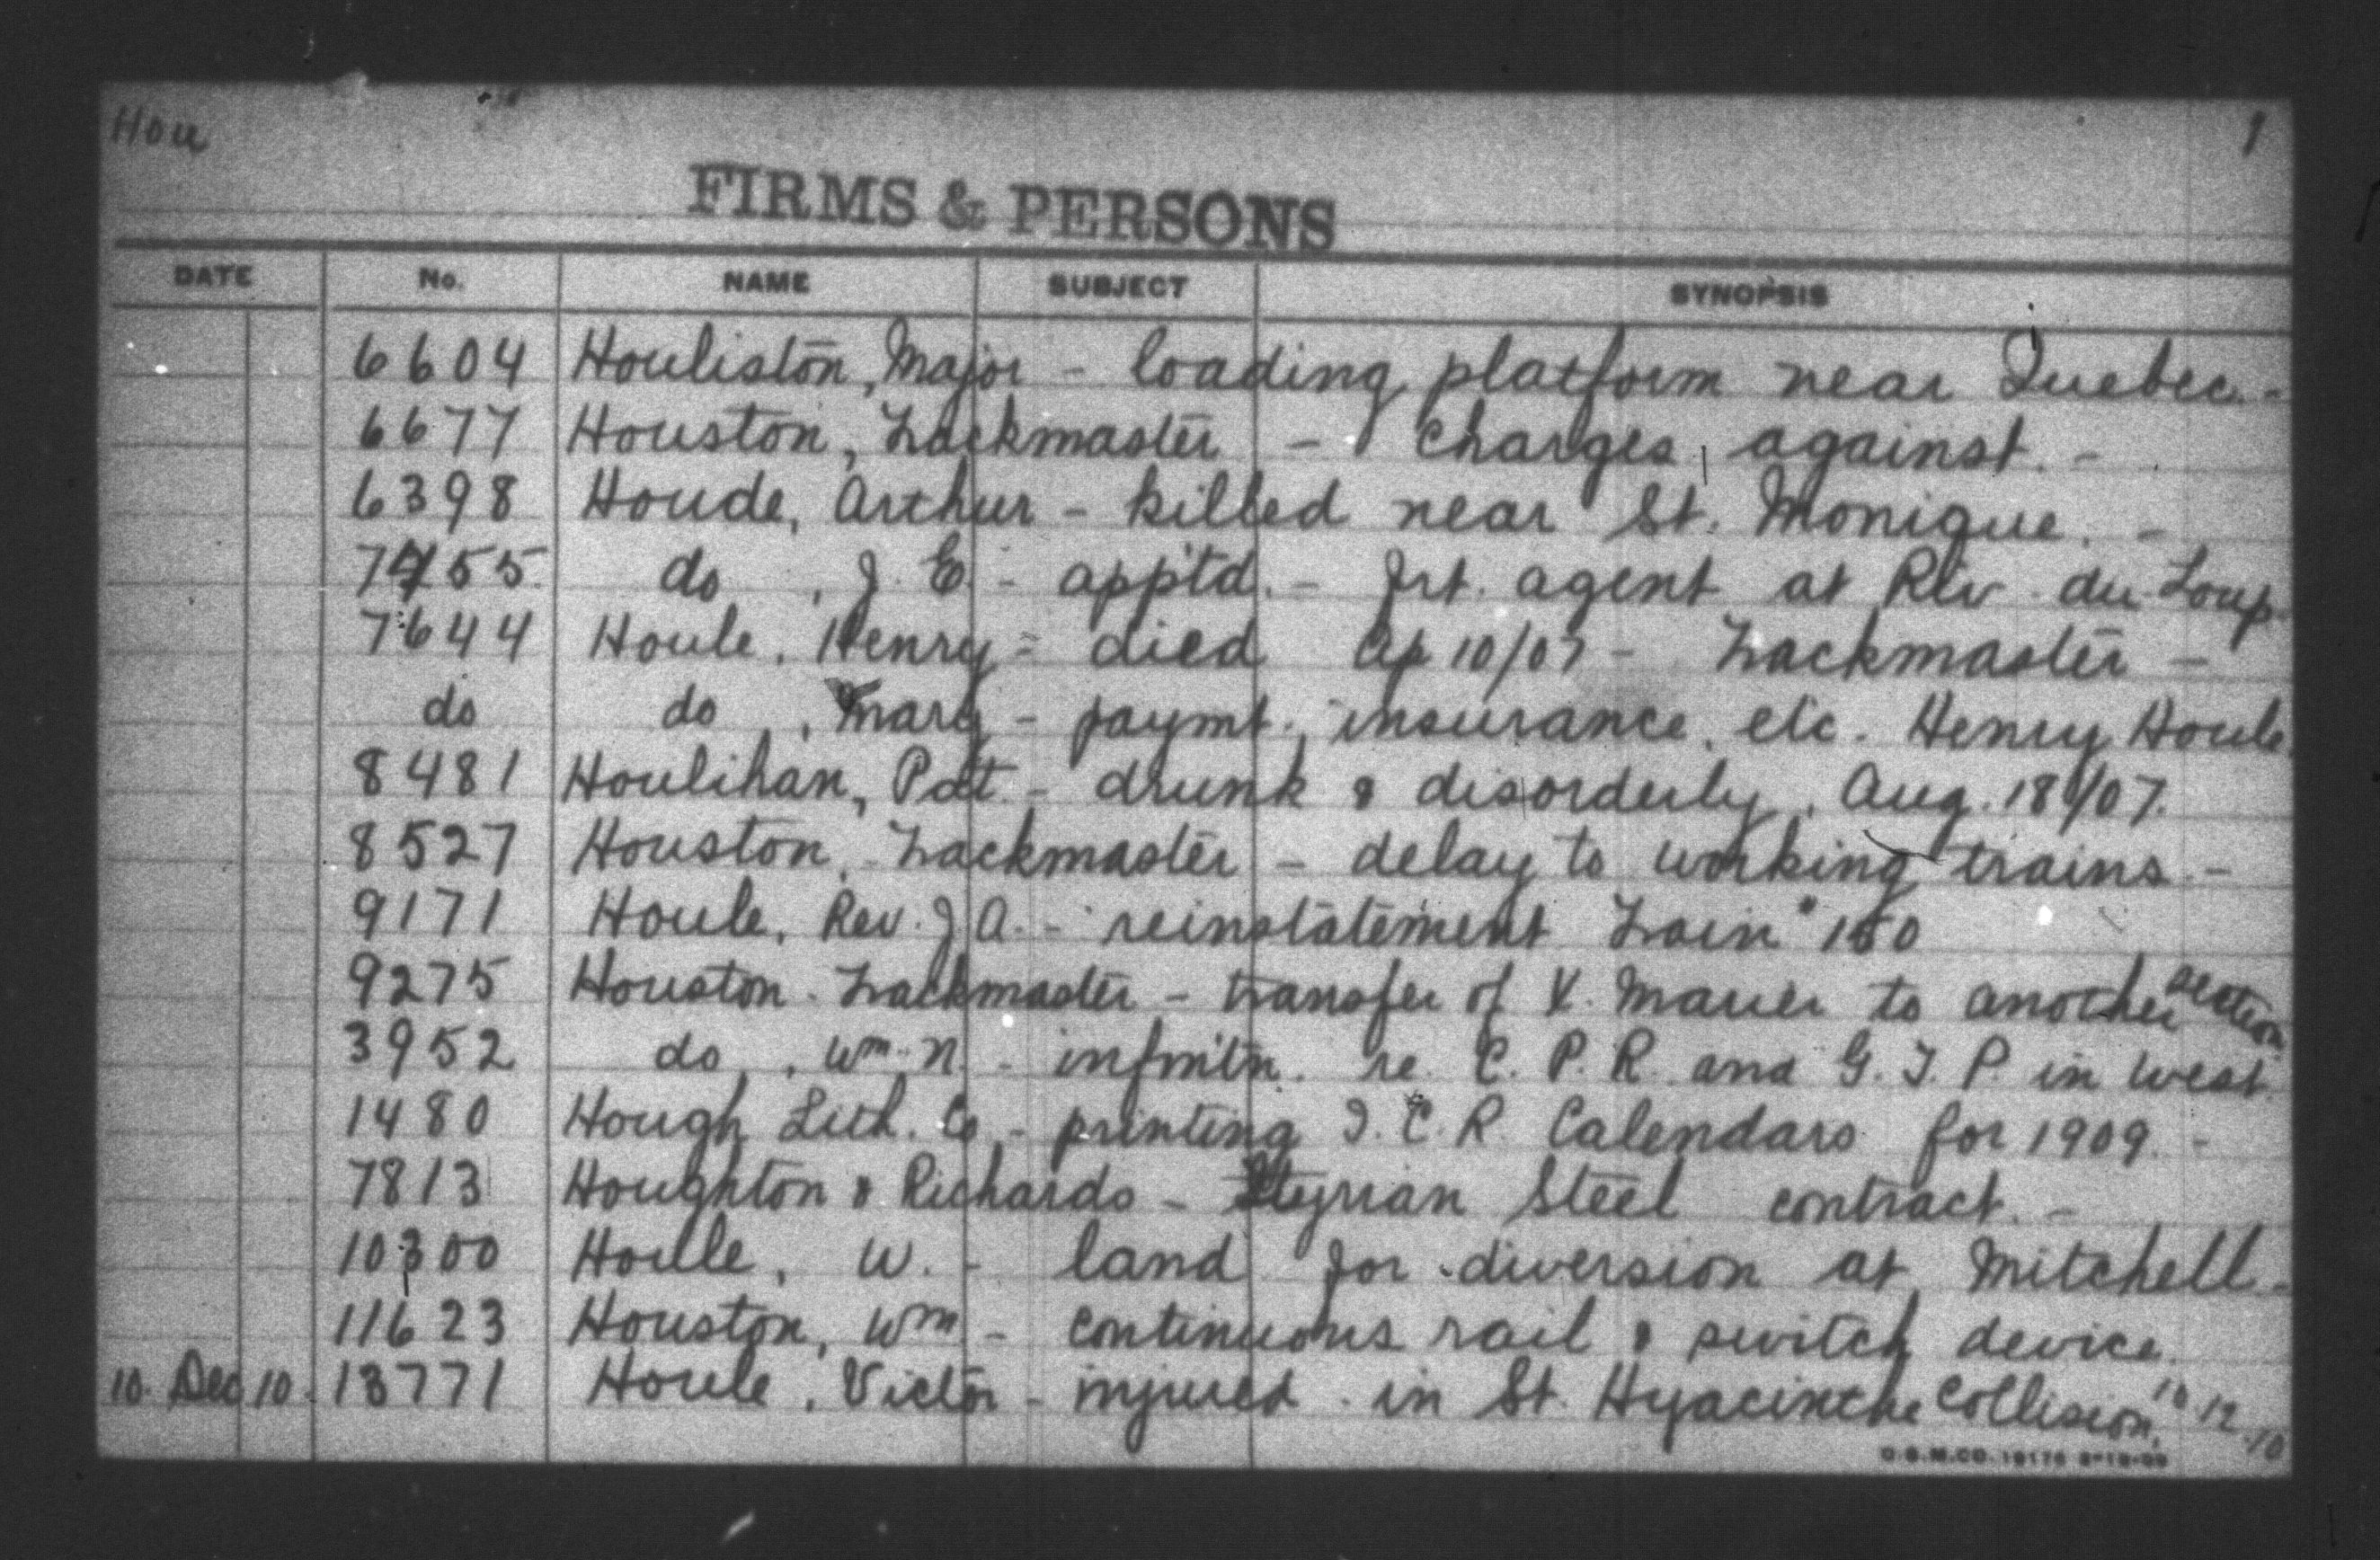 Hou 1
FIRMS & PERSONS
DATE No. NAME SUBJECT SYNOPSIS
6604 Houliston, Major - loading platform near Quebec. -
6677 Houston, Trackmaster - Charges against. -
6398 Houde, Arthur - killed near St. Monique. -
7455 do , J. E. - app'td. - frt. agent at Riv. du Loup.
7644 Houle, Henry - died Ap 10/07 - Trackmaster -
do do , Mary - paymt. insurance, etc. Henry Houle
8481 Houlihan, Pat. - drunk & disorderly, Aug. 18/07.
8527 Houston, Trackmaster - delay to working trains. -
9171 Houle, Rev. J A. - reinstatement Train 150
9275 Houston. Trackmaster - transfer of V. Maurer to another section
3952 do , Wm. N. - infmtn. re. C. P. R. and G. T. P. in West.
1480 Hough Lith. Co. - printing I. C. R. Calendars for 1909. -
7813 Houghton & Richards - Styrian Steel contract. -
10300 Houle, W. - land for diversion at Mitchell -
11623 Houston, Wm - continuous rail & switch device.
10. Dec 10. 13771 Houle, Victor - injured in St. Hyacinthe Collision, 10 12 10